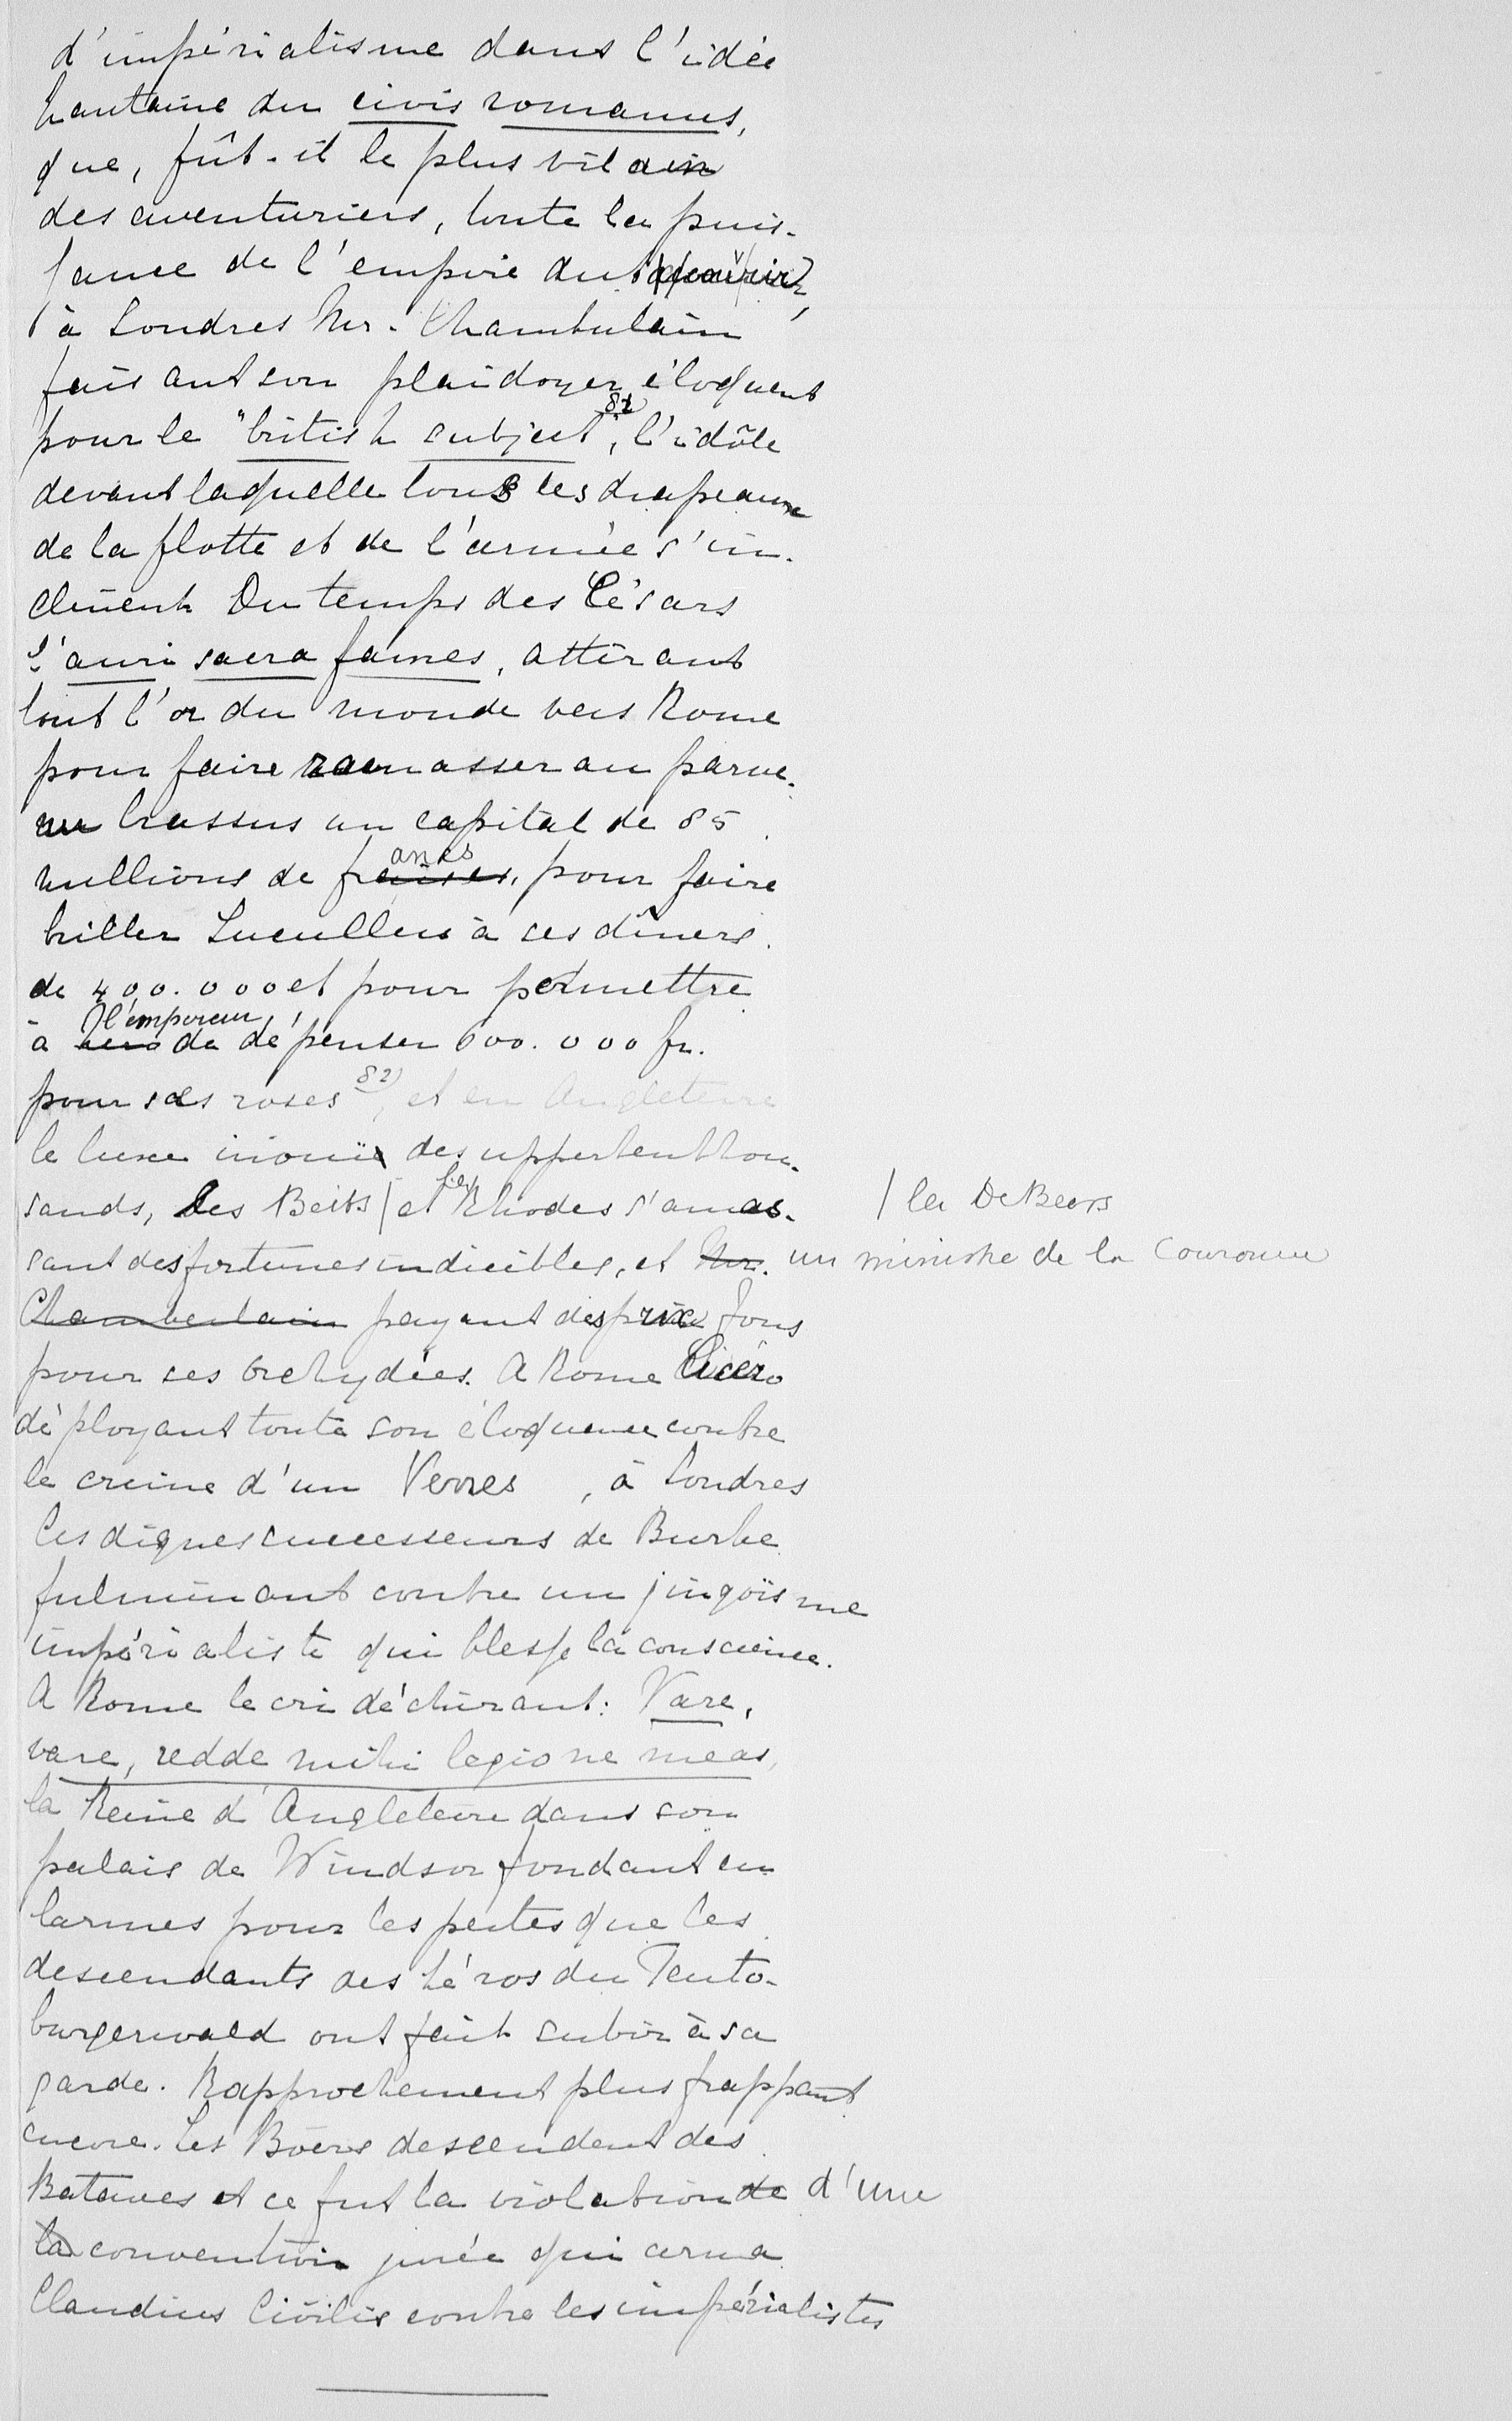 d'impérialisme dans l'idée
hautaine du civis romanus,
que, fût-il le plus vilain
des aventuriers, toute la puis-
sance de l'empire dut
à Londres Mr. Chamberlain
faisant son plaidoyer éloquent
pour le "british subject", 81) l'idôle
devant laquelle tous les drapeaux
de la flotte et de l'armée s'in-
clinent. Du temps des Césars
l'auri sacra fames, attirant
tout l'or du monde vers Rome
pour faire ramasser au parve-
nu Crassus un capital de 85
millions de francs, pour faire
briller Lucullus à ces dîners
de 400.000 et pour permettre
à l'empereur de dépenser 600.000 fr.
pour ses roses 82), et en Angleterre
le luxe inouï des uppertenthou-
sands, les Beits / et les Rhodes s'amas- / les De Beers
sant des fortunes indicibles, et Mr. un ministre de la Couronne
Chamberlain payant des prix fous
pour ses orchydées. A Rome Cicéro
déployant toute son éloquence contre
le crime d'un Verres, à Londres
les dignes successeurs de Burke
fulminant contre un jingoïsme
impérialiste qui blesse la conscience.
A Rome le cri déchirant: Vare,
vare, redde mihi legione meas,
la Reine d'Angleterre dans son
palais de Windsor fondant en
larmes pour les pertes que les
descendants des héros du Teuto-
burgerwald ont fait subir à sa
garde. Rapprochement plus frappant
encore. Les Boërs descendent des
Bataves et ce fut la violation de d'une
la convention jurée qui arma
Claudius Civilis contre les impérialistes